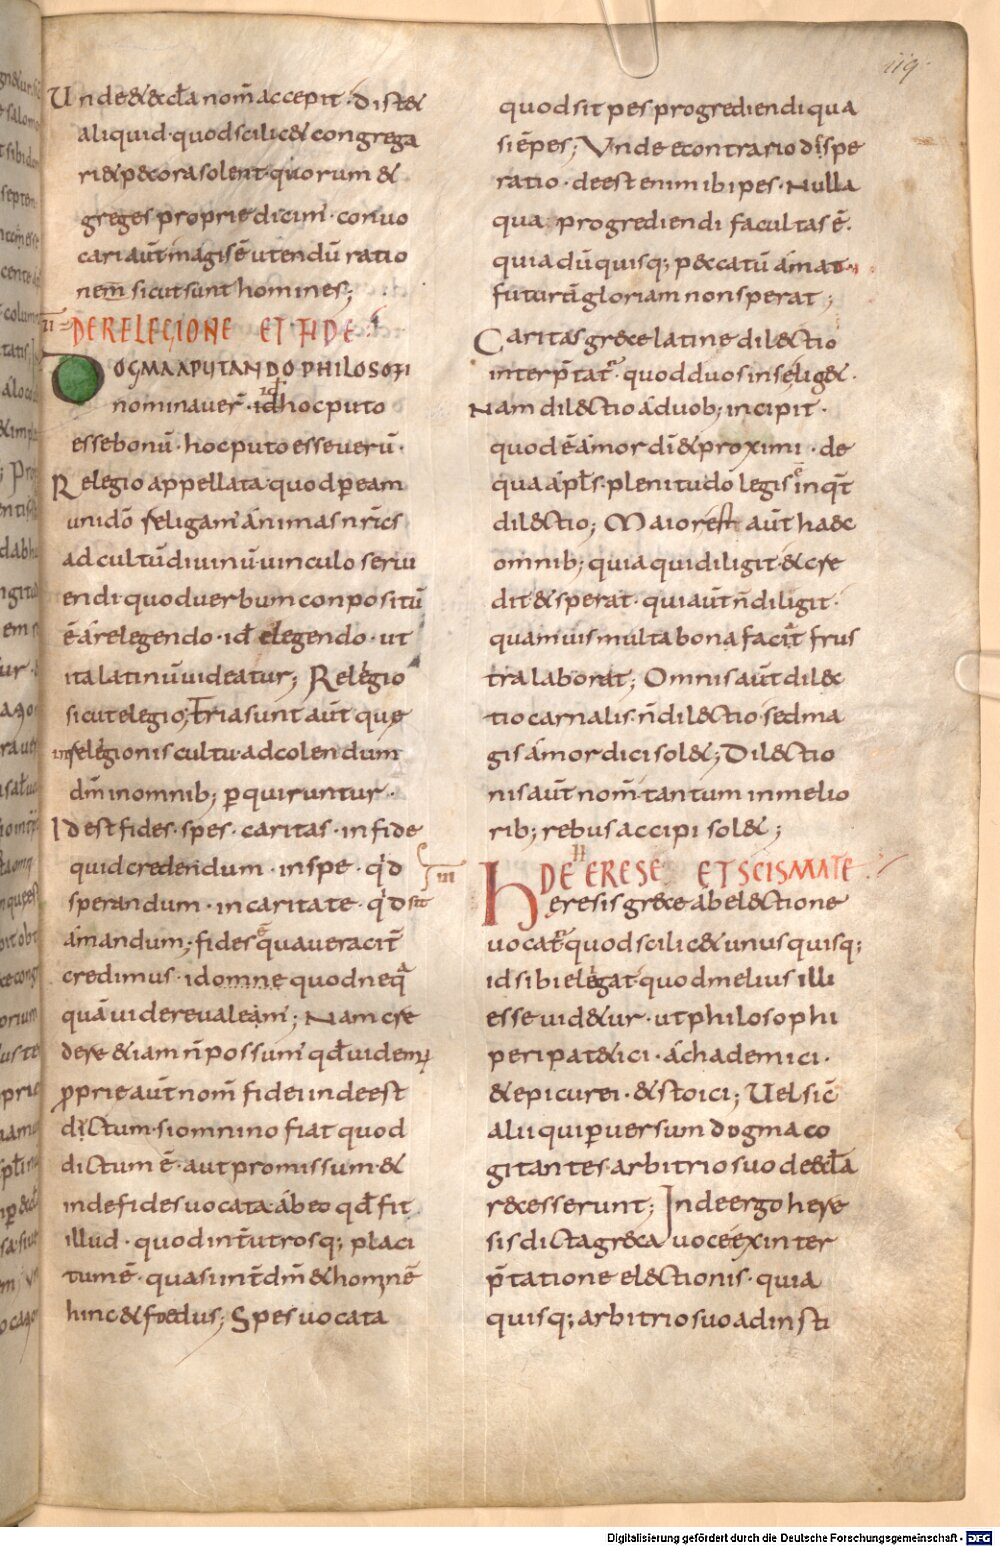 119.
Unde & &ccla nom̄ accepit · dist&
aliquid · quod scilic& congrega
ri & p&cora solent · quorum &
greges proprie dicim̄ · conuo
cari aut̄ magis ē utendū ratio
nem sicut sunt homines;
II DE RELEGIONE ET FIDE
DOGMA A PUTANDO PHILOSOFI
nominauer̄ · id hoc puto
esse bonū · hoc puto esse uerū ·
Relegio appellata · quod p eam
uni dō religam̄ animas nr̄as
ad cultū diuinū uinculo serui
endi · quod uerbum conpositū
ē a relegendo · id elegendo · ut
ita latinū uideatur; Relegio
sicut elegio; Tria sunt aut̄ que
in relegionis cultu · ad colendum
dm̄ in omnib; p quiruntur ·
Id est fides · spes · caritas · in fide
quid credendum · in spe · qd
sperandum · in caritate · qd sit
amandum; fides ē qua ueracit̄
credimus · id omne quod neq
quā uidere ualeam̄; Nam cre
dere & iam n̄ possum̄ qd uidem
pprie aut̄ nom̄ fidei inde est
dictum · si omnino fiat quod
dictum ē · aut promissum · &
inde fides uocata · ab eo qd fit
illud · quod int̄ utrosq; placi
tum ē · quasi int̄ dm̄ & hominē
hinc & foedus; Spes uocata
quod sit pes progrediendi qua
si ē pes; Unde e contrario dispe
ratio · deest enim ibi pes · Nulla
qua progrediendi facultas ē ·
quia dū quisq; p&catū amat
futurā gloriam non sperat;
Caritas grece latine dilectio
interp̄tat̄ · quod duos in se lig& ·
Nam dilectio a duob; incipit ·
quod ē amor dī & proximi · de
qua apls · plenitudo legis ē inq̄t
dilectio; Maior est aut̄ haec
omnib; quia qui diligit & cre
dit & sperat · qui aut̄ n̄ diligit ·
quamuis multa bona facit frus
tra laborat; Omnis aut̄ dilec
tio carnalis · n̄ dilectio sed ma
gis amor dici sol&; Dilectio
nis aut̄ nom̄ · tantum in melio
rib; rebus accipi sol&;
III DE HERESE ET SCISMATE
heresis grece ab electione
uocat̄ quod scilic& unusquisq;
id sibi elegat quod melius illi
esse uid&ur · ut philosophi
peripat&ici · achademici ·
& epicurei · & stoici; Uel sic̄
alii qui puersum dogma co
gitantes · arbitrio suo de &cla
recesserunt; Inde ergo here
sis dicta greca uoce ex inter
p̄tatione electionis · quia
quisq; arbitrio suo ad insti
Digitalisierung gefördert durch die Deutsche Forschungsgemeinschaft - DFG